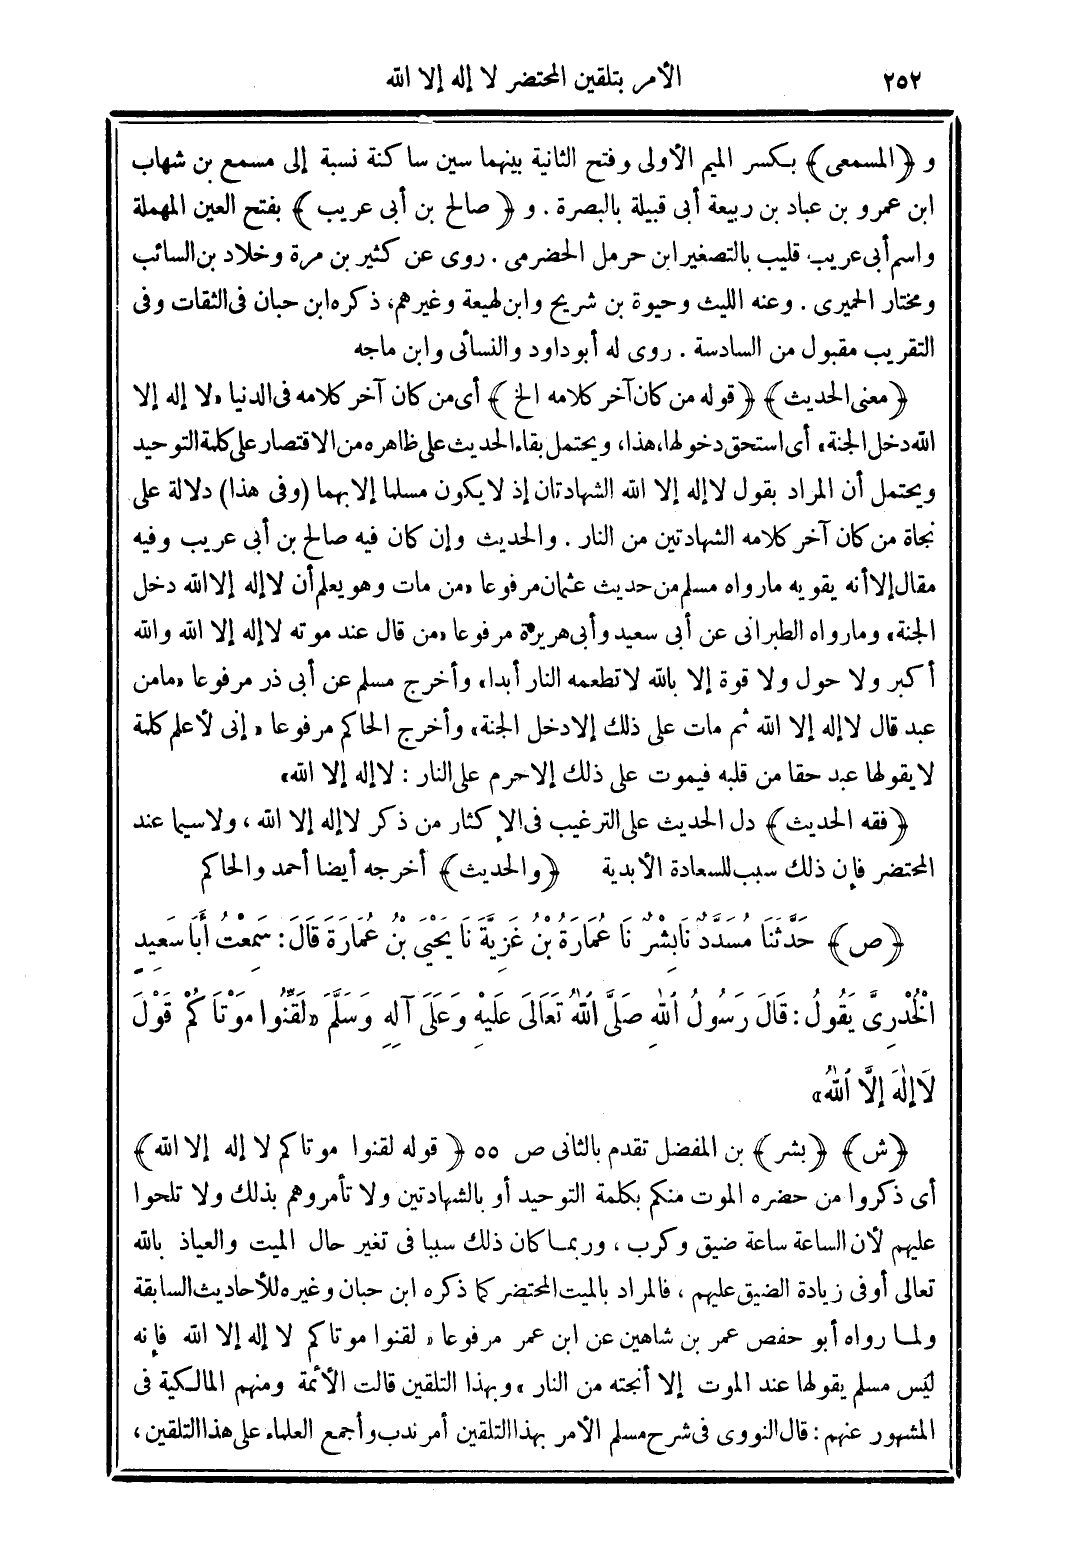 ٢٥٢ الأمر بتلقين المحتضر لا إله إلا الله
و ﴿المسمعى﴾ بكسر الميم الأولى وفتح الثانية بينهما سين ساكنة نسبة إلى مسمع بن شهاب
ابن عمرو بن عباد بن ربيعة أبى قبيلة بالبصرة . و ﴿ صالح بن أبى عريب ﴾ بفتح العين المهملة
واسم أبى عريب قليب بالتصغير ابن حرمل الحضرمى . روى عن كثير بن مرة وخلاد بن السائب
ومختار الحميرى . وعنه الليث وحيوة بن شريح وابن لهيعة وغيرهم، ذكره ابن حبان فى الثقات وفى
التقريب مقبول من السادسة . روى له أبو داود والنسائى وابن ماجه
﴿معنى الحديث﴾ ﴿قوله من كان آخر كلامه الخ﴾ أى من كان آخر كلامه فى الدنيا «لا إله إلا
الله دخل الجنة» أى استحق دخولها، هذا، ويحتمل بقاء الحديث على ظاهره من الاقتصار على كلمة التوحيد
ويحتمل أن المراد بقول لا إله إلا الله الشهادتان إذ لا يكون مسلما إلا بهما (وفى هذا) دلالة على
نجاة من كان آخر كلامه الشهادتين من النار . والحديث وإن كان فيه صالح بن أبى عريب وفيه
مقال إلا أنه يقويه ما رواه مسلم من حديث عثمان مرفوعا «من مات وهو يعلم أن لا إله إلا الله دخل
الجنة» وما رواه الطبرانى عن أبى سعيد وأبى هريرة مرفوعا «من قال عند موته لا إله إلا الله والله
أكبر ولا حول ولا قوة إلا بالله لا تطعمه النار أبدا» وأخرج مسلم عن أبى ذر مرفوعا «ما من
عبد قال لا إله إلا الله ثم مات على ذلك إلا دخل الجنة» وأخرج الحاكم مرفوعا «إنى لأعلم كلمة
لا يقولها عبد حقا من قلبه فيموت على ذلك إلا حرم على النار : لا إله إلا الله»
﴿فقه الحديث﴾ دل الحديث على الترغيب فى الإكثار من ذكر لا إله إلا الله ، ولاسيما عند
المحتضر فإن ذلك سبب للسعادة الأبدية ﴿والحديث﴾ أخرجه أيضا أحمد والحاكم
﴿ص﴾ حَدَّثَنَا مُسَدَّدٌ نَا بِشْرٌ نَا عُمَارَةُ بْنُ غَزِيَّةَ نَا يَحْيَى بْنُ عُمَارَةَ قَالَ: سَمِعْتُ أَبَا سَعِيدٍ
الْخُدْرِىَّ يَقُولُ: قَالَ رَسُولُ اللهِ صَلَّى اللهُ تَعَالَى عَلَيْهِ وَعَلَى آلِهِ وَسَلَّمَ «لَقِّنُوا مَوْتَاكُمْ قَوْلَ
لَا إِلٰهَ إِلَّا اللهُ»
﴿ش﴾ ﴿بشر﴾ بن المفضل تقدم بالثانى ص ٥٥ ﴿ قوله لقنوا موتاكم لا إله إلا الله﴾
أى ذكروا من حضره الموت منكم بكلمة التوحيد أو بالشهادتين ولا تأمروهم بذلك ولا تلحوا
عليهم لأن الساعة ساعة ضيق وكرب ، وربما كان ذلك سببا فى تغير حال الميت والعياذ بالله
تعالى أو فى زيادة الضيق عليهم ، فالمراد بالميت المحتضر كما ذكره ابن حبان وغيره للأحاديث السابقة
ولما رواه أبو حفص عمر بن شاهين عن ابن عمر مرفوعا «لقنوا موتاكم لا إله إلا الله فإنه
ليس مسلم يقولها عند الموت إلا أنجته من النار» وبهذا التلقين قالت الأئمة ومنهم المالكية فى
المشهور عنهم : قال النووى فى شرح مسلم الأمر بهذا التلقين أمر ندب وأجمع العلماء على هذا التلقين ،